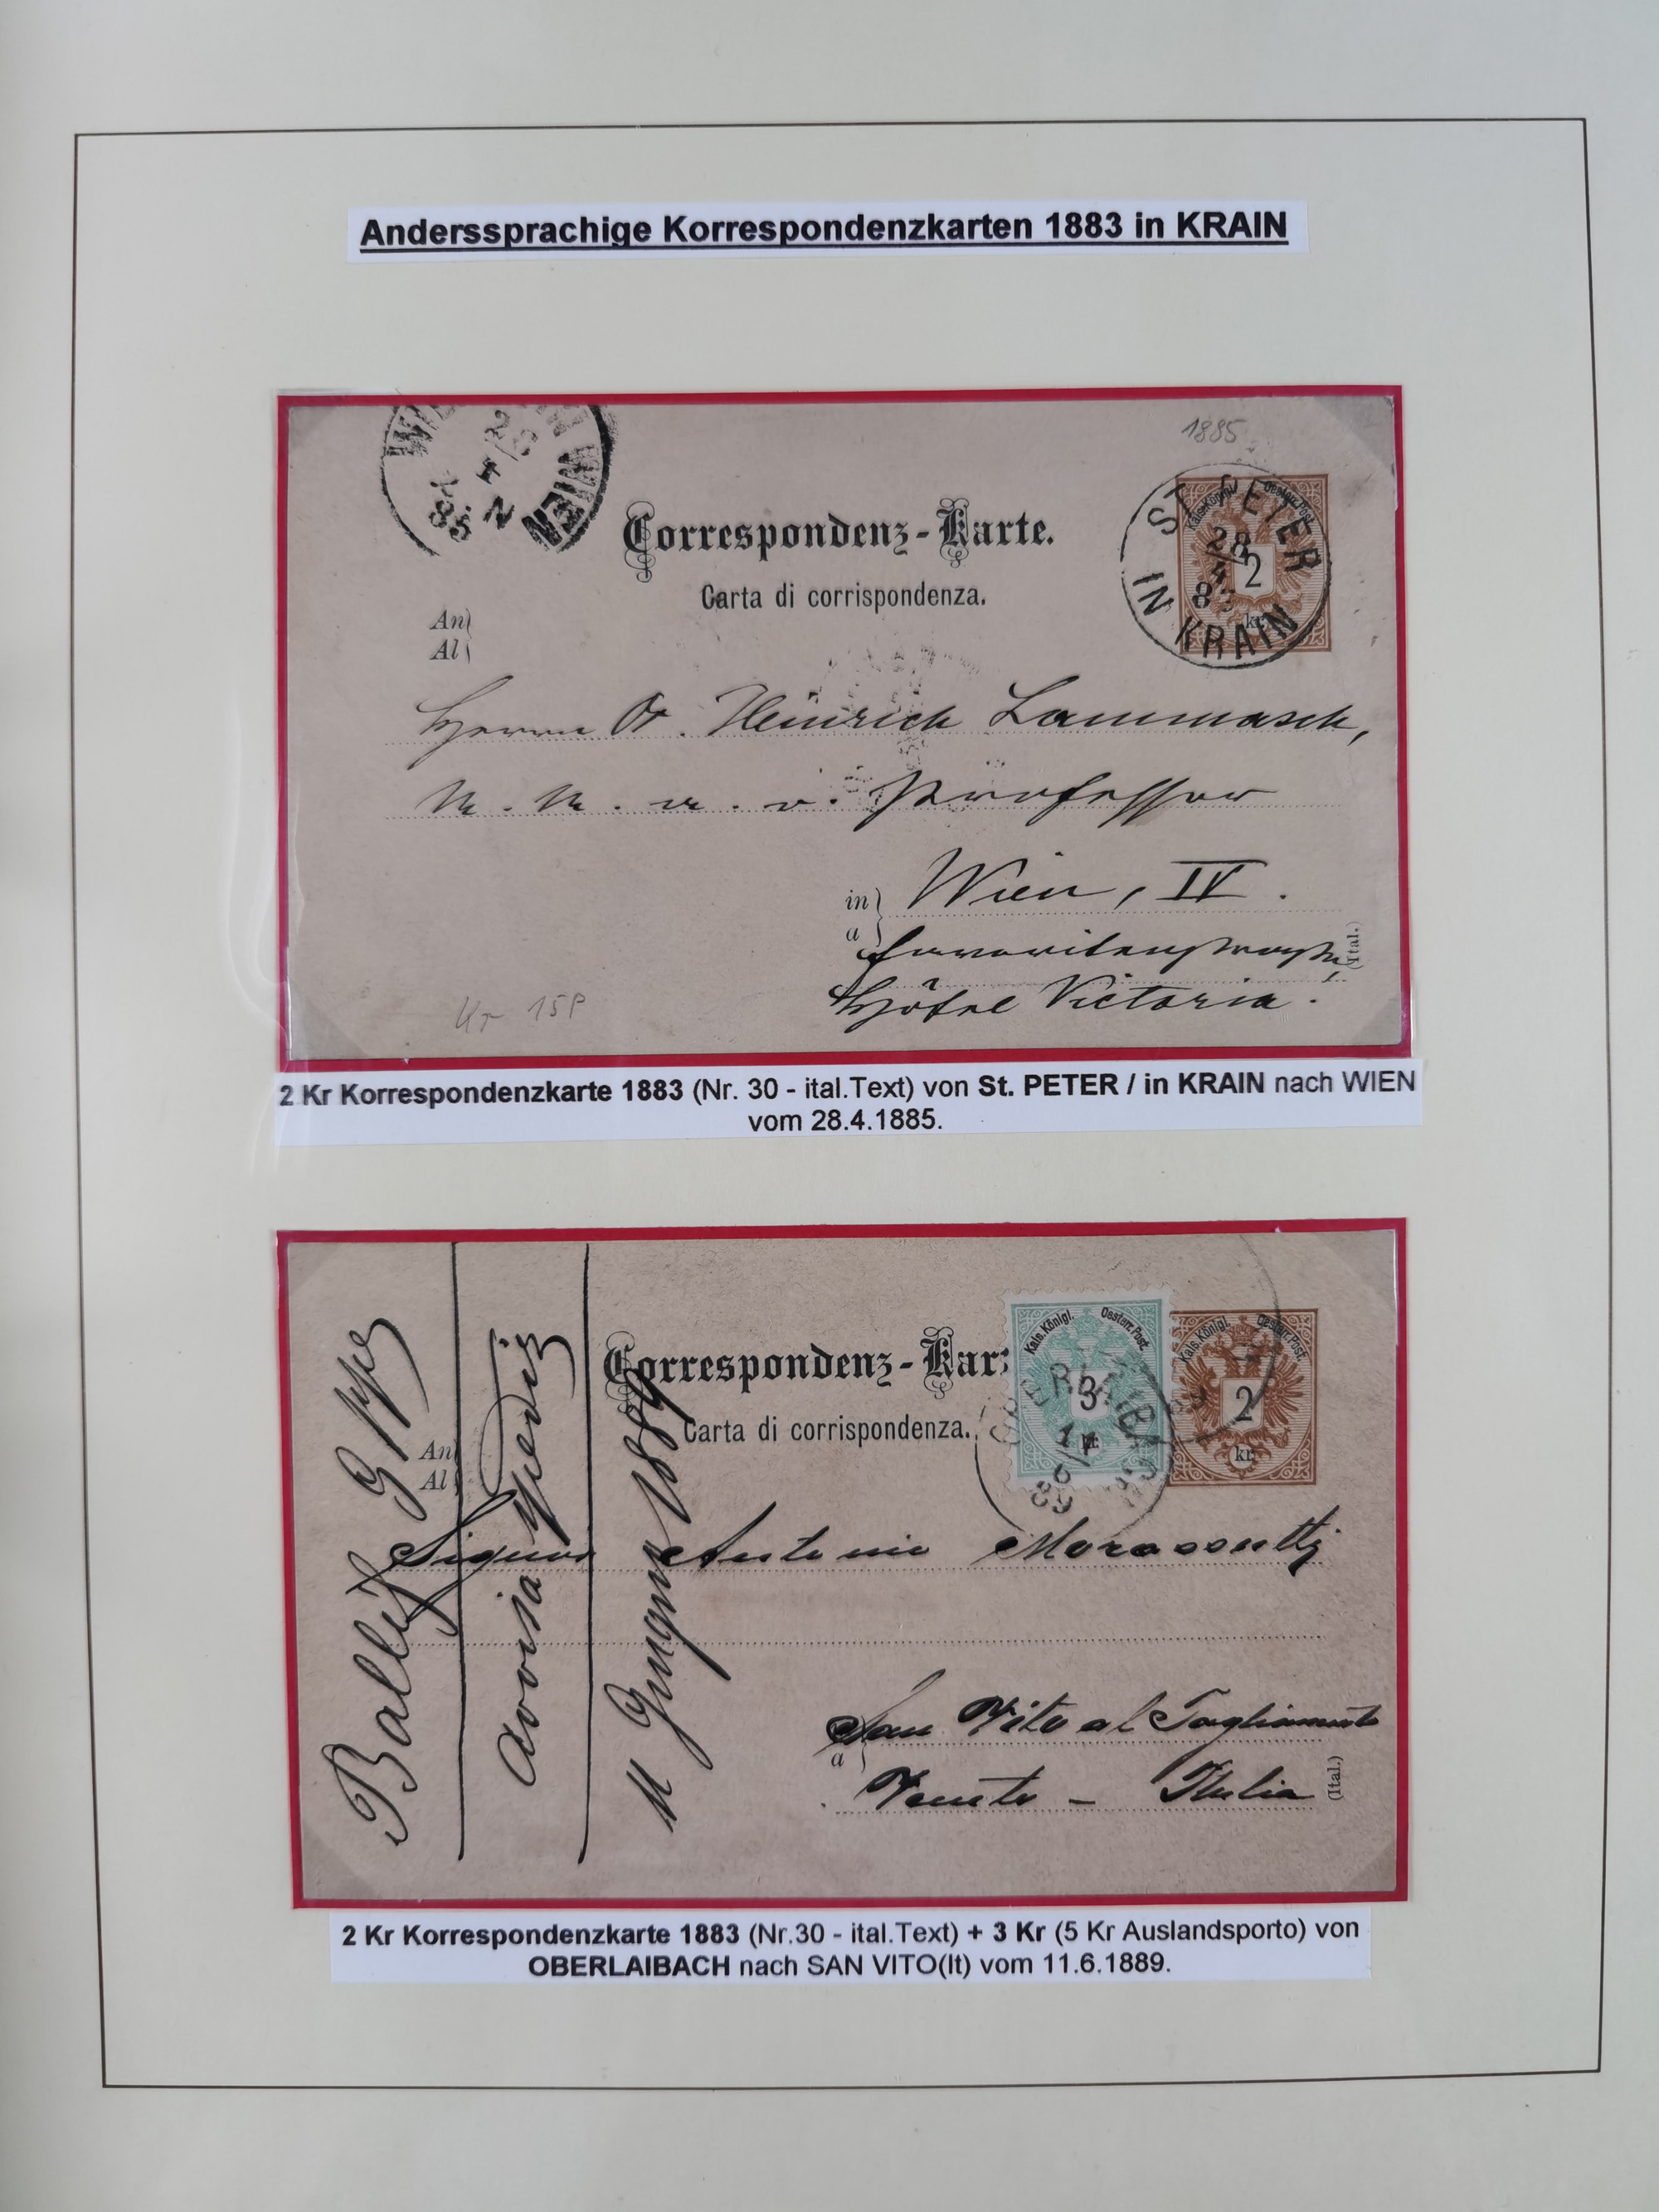 Anderssprachige Korrespondenzkarten 1883 in KRAIN
1885
WIEN
85
Correspondenz-Karte.
Carta di corrispondenza.
Kais. Königl. Oesterr. Post.
2
kr.
ST. PETER
28
4
IN KRAIN
An
Al
Herrn Dr. Heinrich Lammasch,
Professor
in
a
Wien, IV.
Hôtel Victoria.
(Ital.)
Kr 15P
2 Kr Korrespondenzkarte 1883 (Nr. 30 - ital.Text) von St. PETER / in KRAIN nach WIEN
vom 28.4.1885.
Correspondenz-Kar
Carta di corrispondenza.
Kais. Königl. Oesterr. Post.
3
kr.
Kais. Königl. Oesterr. Post.
2
kr.
11
6
89
An
Al
Signor Antonio Morassutti
San Vito al Tagliamento
a
Veneto - Italia
(Ital.)
11 Giugno 1889
2 Kr Korrespondenzkarte 1883 (Nr.30 - ital.Text) + 3 Kr (5 Kr Auslandsporto) von
OBERLAIBACH nach SAN VITO(It) vom 11.6.1889.